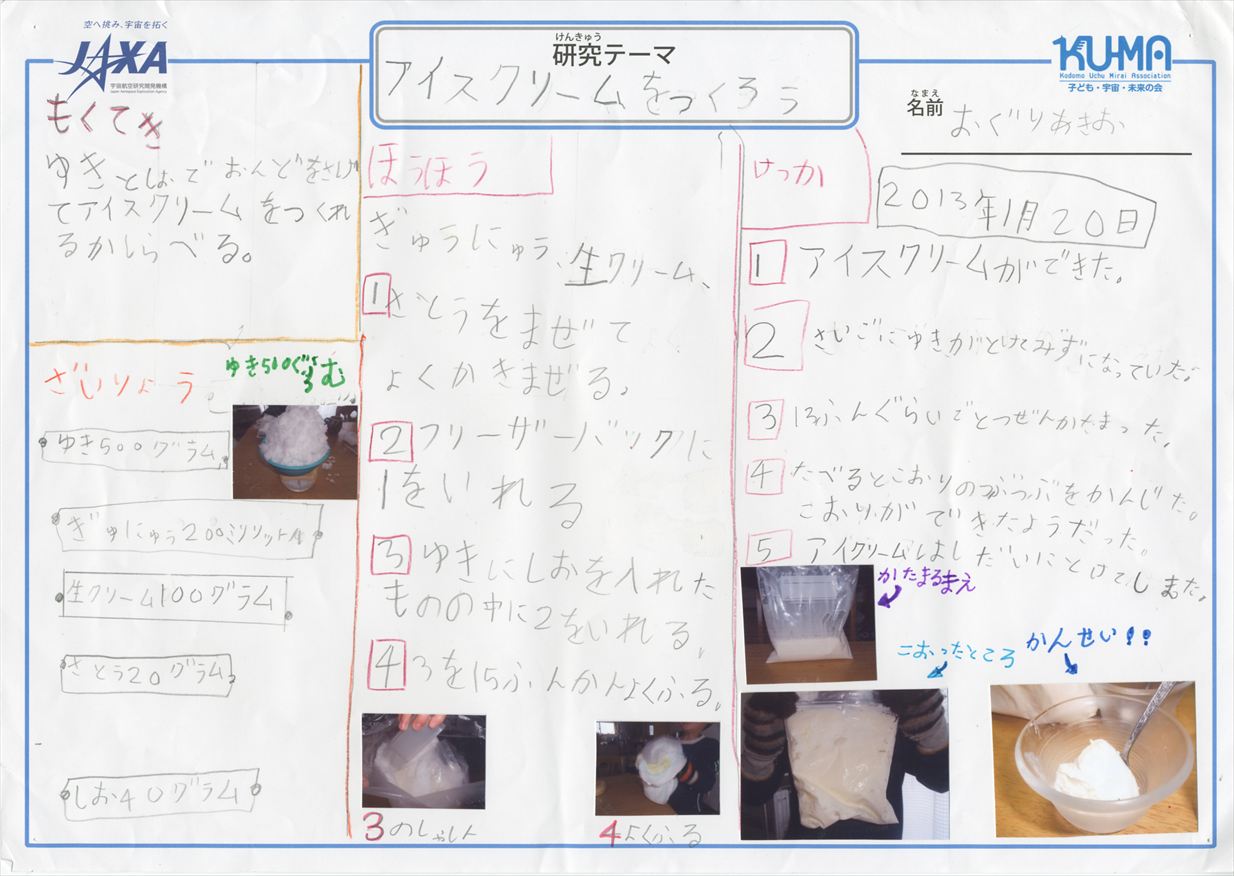 空へ挑み、宇宙を拓く
JAXA
宇宙航空研究開発機構
Japan Aerospace Exploration Agency
けんきゅう
研究テーマ
アイスクリームをつくろう
KU-MA
Kodomo Uchu Mirai Association
子ども・宇宙・未来の会
なまえ
名前
おぐりあきお
2013年1月20日
もくてき
ゆきとしおでおんどをさげ
てアイスクリームをつくれ
るかしらべる。
ざいりょう
ゆき500ぐ
らむ
ゆき500グラム
ぎゅにゅう200ミリリットル
生クリーム100グラム
さとう20グラム
しお40グラム
ほうほう
ぎゅうにゅう、生クリーム、
1
さとうをまぜて
よくかきまぜる。
2 フリーザーバックに
1をいれる
3 ゆきにしおを入れた
ものの中に2をいれる。
4 3を15ふんかんよくふる。
3のしゃしん
4よくふる
けっか
1 アイスクリームができた。
2 さいごにゆきがとけてみずになっていた。
3 13ふんぐらいでとつぜんかたまった。
4 たべるとこおりのつぶつぶをかんじた。
こおりができたようだった。
5 アイクリームはしだいにとけてしまた。
かたまるまえ
こおったところ
かんせい!!